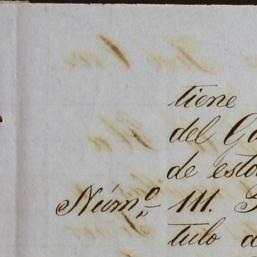 tiene
del G
de esto
Núm.º 111
tulo d